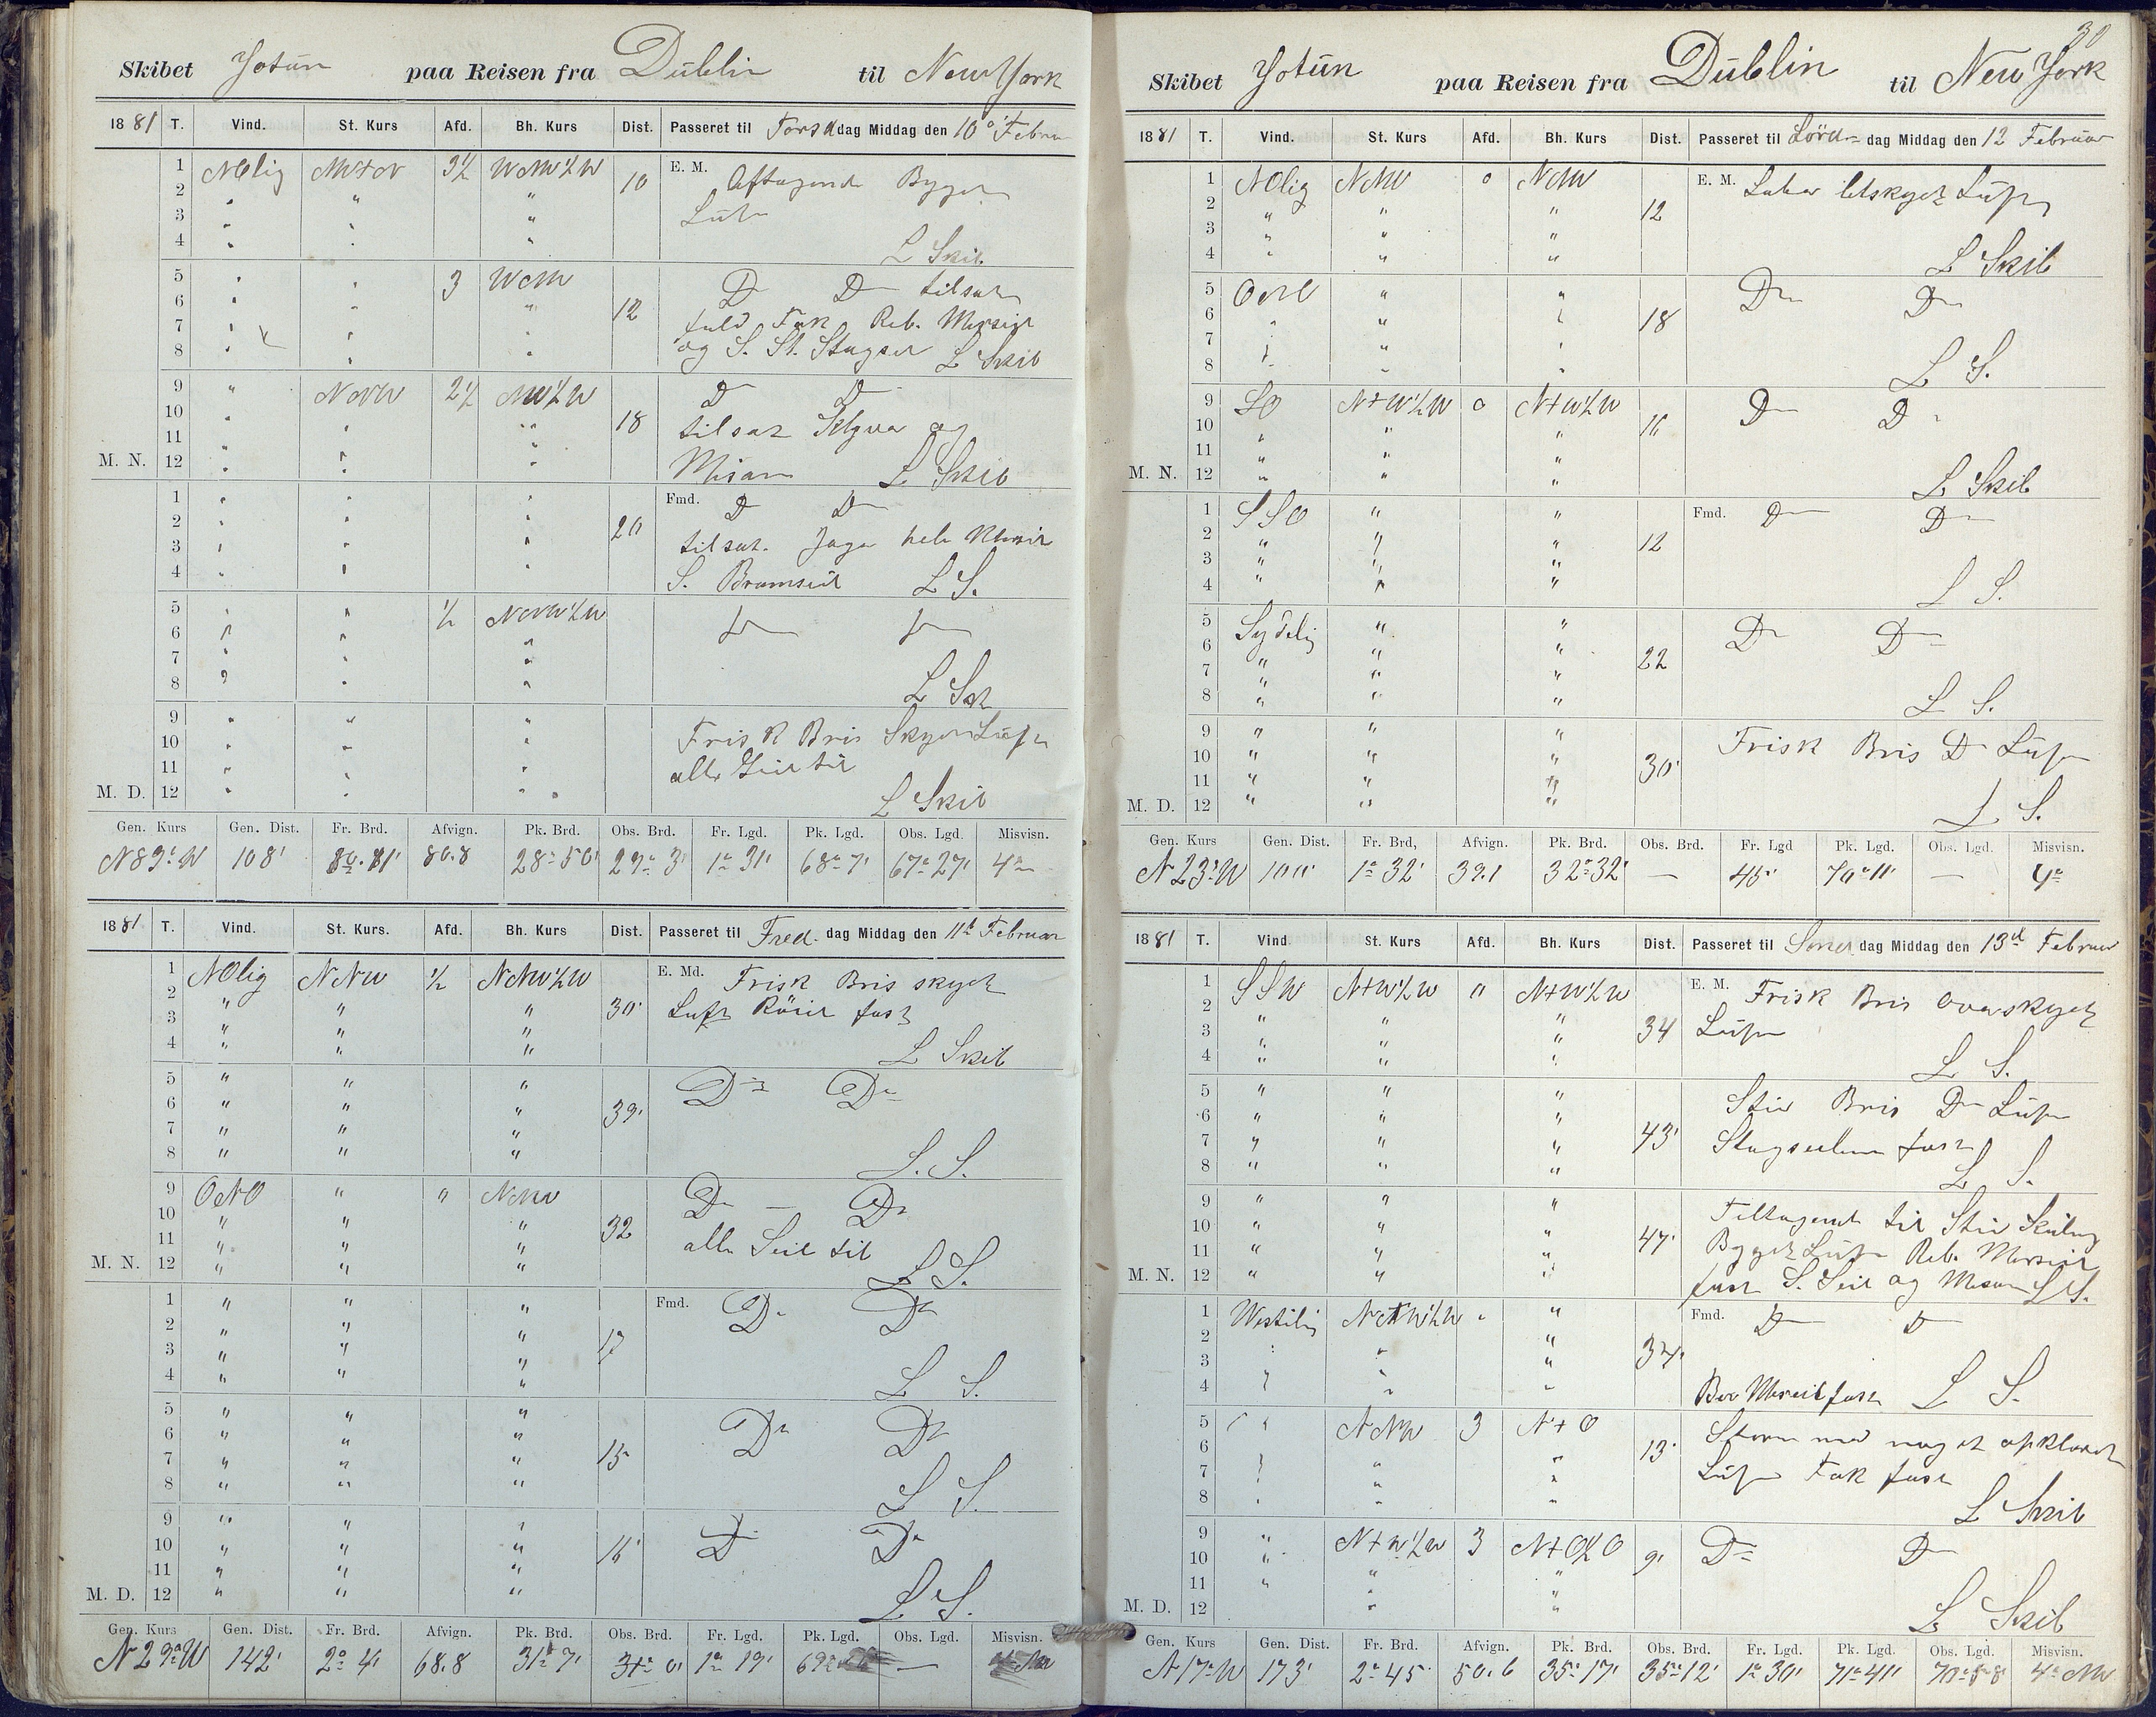 Skibet Jotun paa Reisen fra Dublin til New York
1881 T. Vind. St. Kurs Afd. Bh. Kurs Dist. Passeret til Torsdag Middag den 10 Februar
1 NOlig 3½ WNW½W 10 E. M. Aftagende Bygget
2 " "
3 " Luft
4 L Skib
5 3 WNW Do Do tilsat
6 12 fuld Fok Reb. Mersseil
7 og S. St. Stagseil L Skib
8
9 " NNW 2½ NW½W Do Do
10 18 tilsat Klyver og
11 Mesan L Skib
M. N. 12
1 Fmd. Do Do
2 20 tilsat Jager hele
3 S. Bramseil L S.
4
5 ½ NNW½W Do Do
6
7
8 L Sk
9 Frisk Bris Skyet Luft
10 alle Seil til
11
M. D. 12 L Skib
Gen. Kurs Gen. Dist. Fr. Brd. Afvign. Pk. Brd. Obs. Brd. Fr. Lgd. Pk. Lgd. Obs. Lgd. Misvisn.
108' 80.8 28° 50' 29° 3' 1° 31' 68° 7' 67° 27' 4°
1881 T. Vind. St. Kurs. Afd. Bh. Kurs Dist. Passeret til Fredag Middag den 11te Februar
1 NOlig NNW ½ NNW½W E. Md. Frisk Bris skyet
2 " " " 30' Luft Röiel fast
3 " " "
4 " " " L Skib
5 " " " Do Do
6 " " " 39'
7 " " "
8 " " " L. S.
9 ONO " " NNW Do Do
10 " " " 32 alle Seil til
11 " " "
M. N. 12 " " " L S.
1 " " " Fmd. Do Do
2 " " " 17
3 " " "
4 " " " L S.
5 " " " Do Do
6 " " " 15
7 " " "
8 " " " L S.
9 " " " Do Do
10 " " " 16'
11 " " "
M. D. 12 " " " L S.
Gen. Kurs Gen. Dist. Fr. Brd. Afvign. Pk. Brd. Obs. Brd. Fr. Lgd. Pk. Lgd. Obs. Lgd. Misvisn.
N 29° W 142' 2° 4' 68.8 31° 7' 31° 0' 1° 19' —
30
Skibet Jotun paa Reisen fra Dublin til New York
1881 T. Vind. St. Kurs Afd. Bh. Kurs Dist. Passeret til Lördag Middag den 12 Februar
1 NOlig NNW 0 NNW E. M. Laber letskyet Luft
2 " " " 12
3 " " "
4 " " " L Skib
5 " " Do Do
6 " 18
7 "
8 " L S.
9 SO N+W½W 0 N+W½W Do Do
10 " " " 16
11 " " "
M. N. 12 " " " L Skib
1 SSO " " Fmd. Do Do
2 " " " 12
3 " " "
4 " " " L S.
5 Sydlig " " Do Do
6 " " " 22
7 " " "
8 " " " L S.
9 " " " Frisk Bris Do Luft
10 " " " 30'
11 " " "
M. D. 12 " " " L S.
Gen. Kurs Gen. Dist. Fr. Brd, Afvign. Pk. Brd. Obs. Brd. Fr. Lgd Pk. Lgd. Obs. Lgd. Misvisn.
N 23° W 100' 1° 32' 39.1 32° 32' — 45' 70° 11' — 4°
1881 T. Vind. St. Kurs Afd. Bh. Kurs Dist. Passeret til Sondag Middag den 13de Februar
1 SSW N+W½W " N+W½W E. M. Frisk Bris overskyet
2 " " " 34 Luft
3 " " "
4 " " L S.
5 " " " Stiv Bris Do Luft
6 " " " 43' Stagseilene fast
7 " " "
8 " " " L S.
9 " " " Tiltagende til Stiv Kuling
10 " " " 47' Bygget Luft Reb. Mersseil
11 " " " fast S. Seil og Mesan L S.
M. N. 12 " " "
1 Westlig " Fmd. Do Do
2 " 34'
3 "
4 " Mersseil fast L S.
5 NNW 3 N+O Storm med noget opklaret
6 13' Luft Fok fast
7 "
8 L Skib
9 " N+W½W 3 N+O½O Do Do
10 " 9'
11 " "
M. D. 12 L Skib
Gen. Kurs Gen. Dist. Fr. Brd. Afvign. Pk. Brd. Obs. Brd. Fr. Lgd. Pk. Lgd. Obs. Lgd. Misvisn.
N 17° W 173' 2° 45' 50.6 35° 17' 35° 12' 1° 30' 71° 41' 70° 58' 4° NW